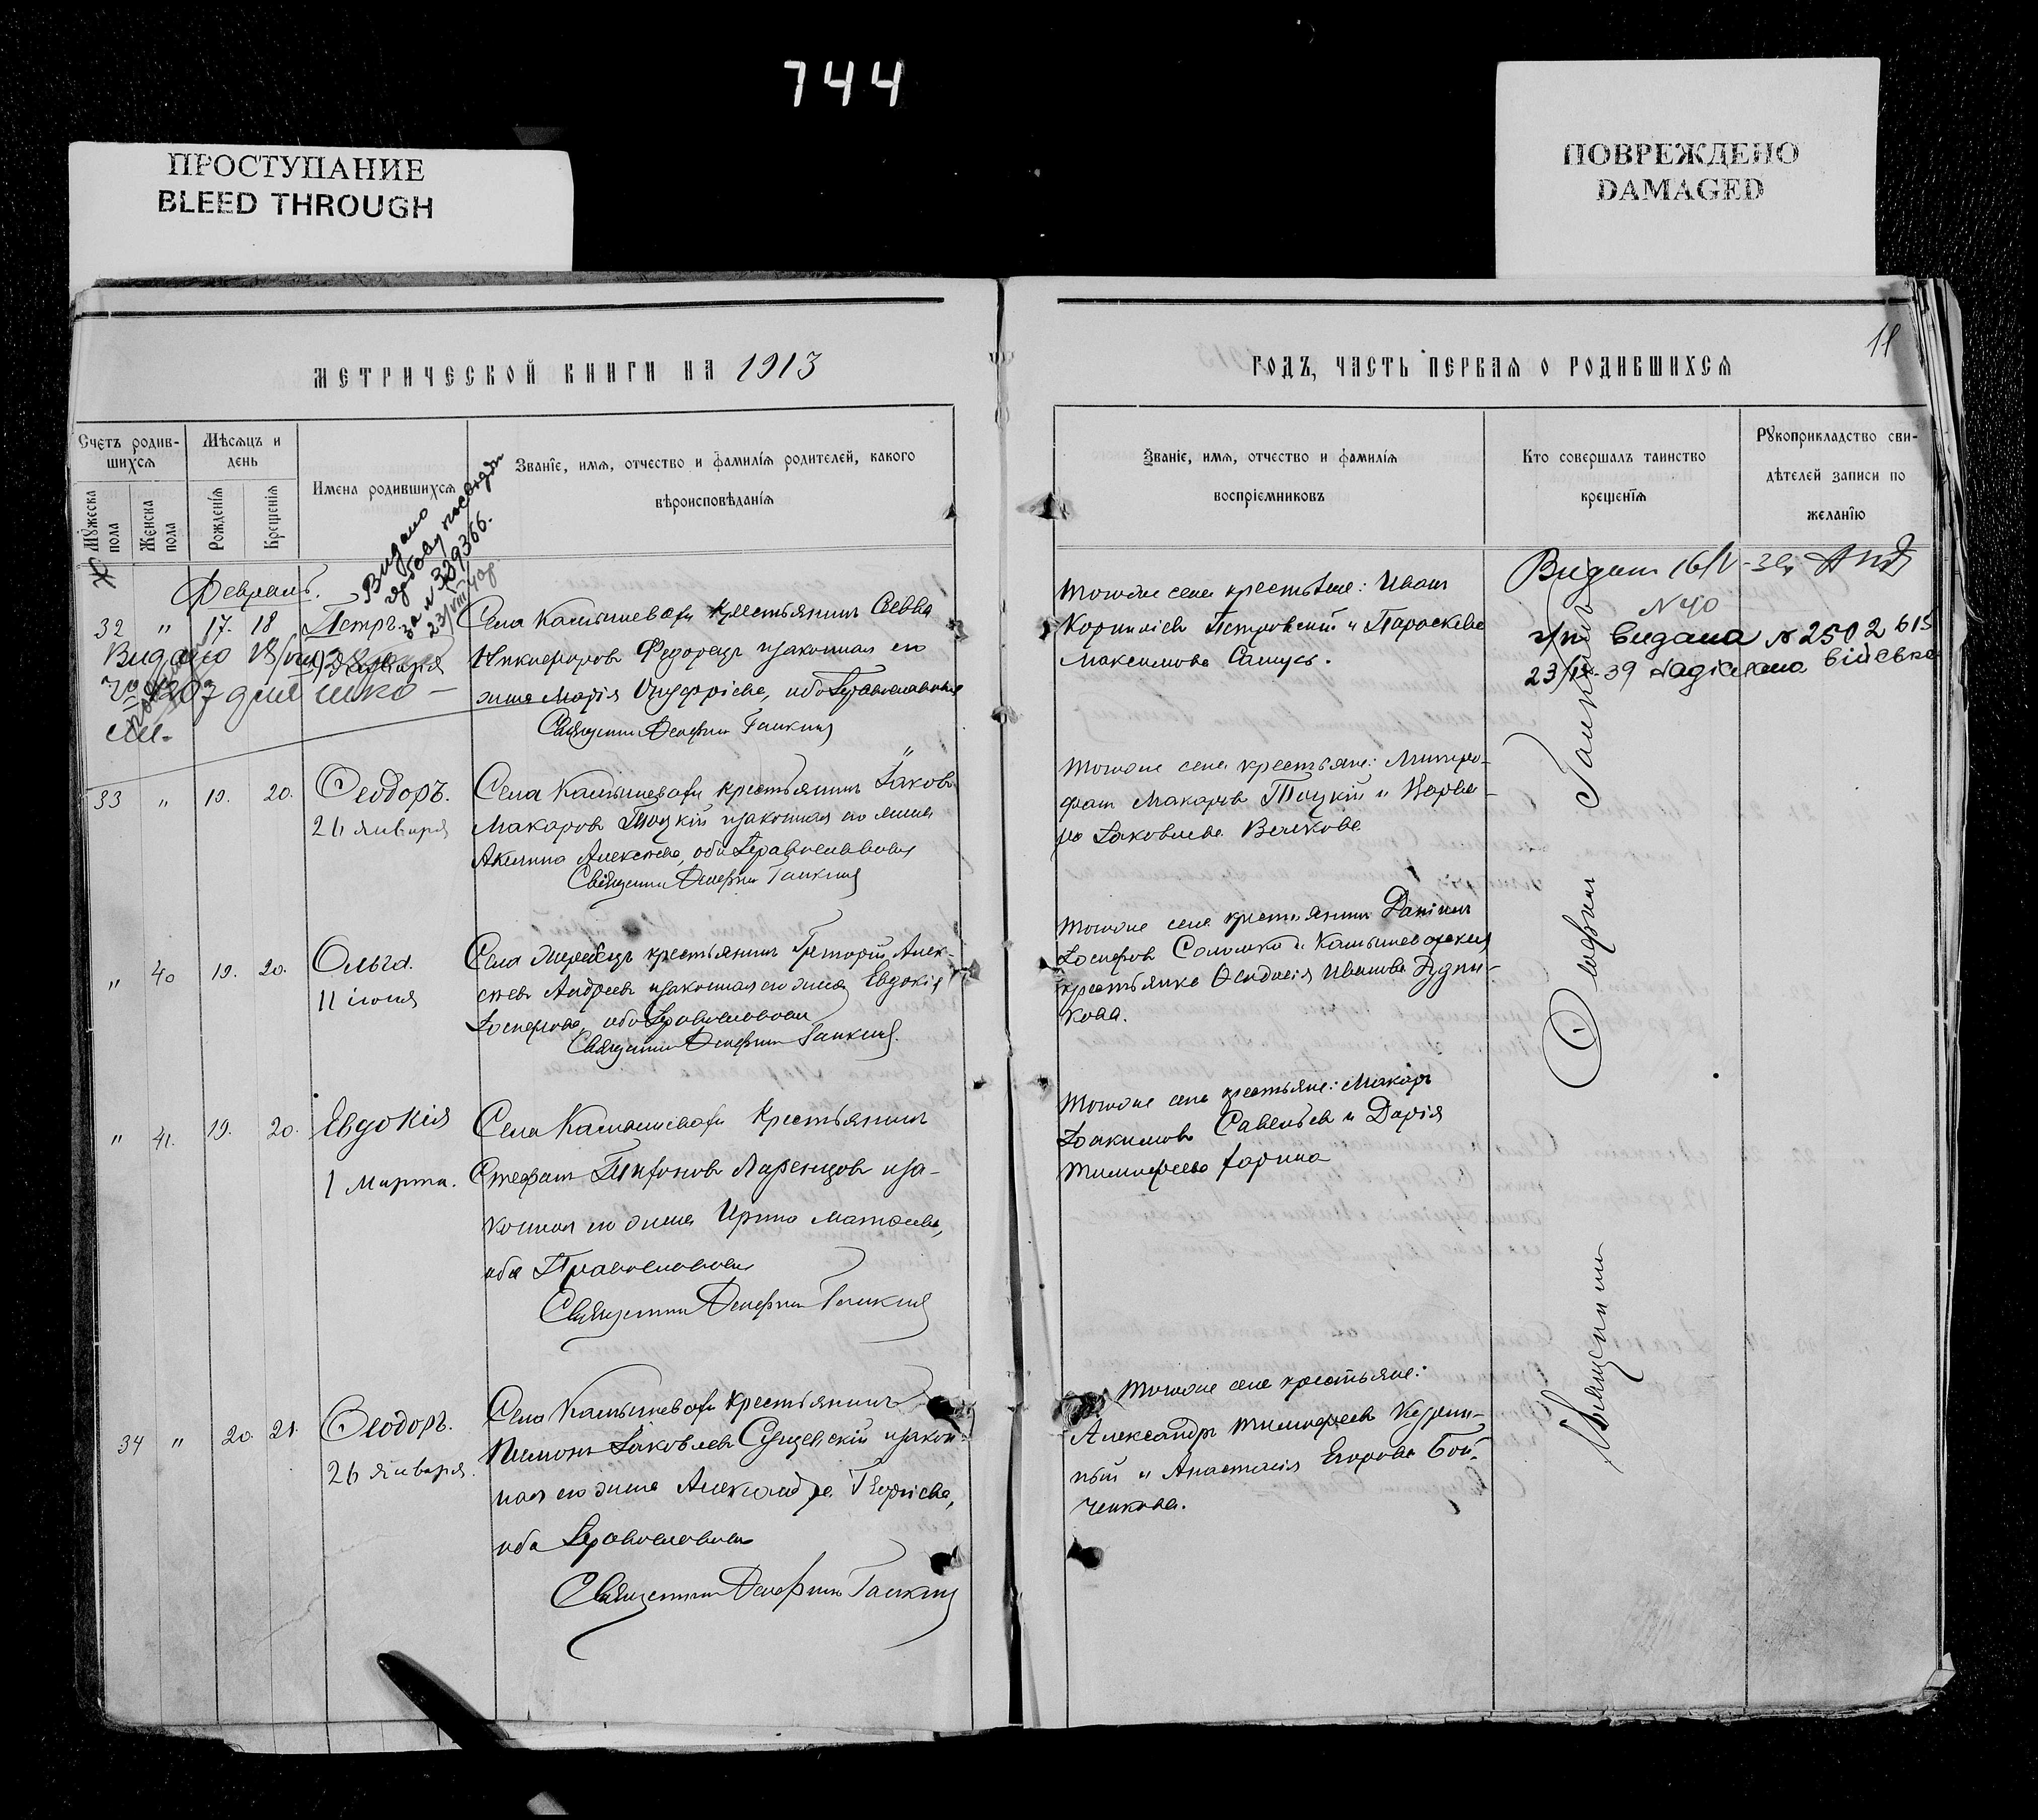 744
ПРОСТУПАНИЕ
BLEED THROUGH
ПОВРЕЖДЕНО
DAMAGED
11
МЕТРИЧЕСКОЙ КНИГИ НА 1913
ГОДЪ, ЧАСТЬ ПЕРВАЯ О РОДИВШИХСЯ
Счетъ родив-
шихся
Мужеска пола
Женска пола
Мѣсяцъ и
день
Рожденія
Крещенія
Имена родившихся
Званіе, имя, отчество и фамилія родителей, какого
вѣроисповѣданія
Званіе, имя, отчество и фамилія
воспріемниковъ
Кто совершалъ таинство
крещенія
Рукоприкладство сви-
дѣтелей записи по
желанію
Февраль.
Видано
за № 339366.
32 " 17. 18 Петръ.
Села Камышевахи крестьянинъ Савва
Никифоровъ Федорецъ и законная его
жена Марія Онуфріева, оба Православные
Священникъ Онуфрій Галкинъ
Тогоже села крестьяне: Иванъ
Корниліевъ Петровскій и Параскева
Максимова
Видано
для шко-
ли.
Видан 16/V-39
№40
видана №2502615
23/ 39 Надіслано військо
33 " 19. 20. Ѳеодоръ.
26 января
Села Камышевахи крестьянинъ Іаковъ
Макаровъ Тоцкій и законная его жена
Акилина Алексѣева, оба Православные
Священникъ Онуфрій Галкинъ
Тогоже села крестьяне: Митро-
фанъ Макаровъ Тоцкій и Варва-
ра Іаковлева Волкова
" 40 19. 20. Ольга.
11 іюля
Села крестьянинъ Григорій Алек-
сѣевъ Андреевъ и законная его жена Евдокія
Іосифова, оба Православные
Священникъ Онуфрій Галкинъ.
Тогоже села крестьянинъ Даніилъ
Іосифовъ Соломка и Камышевахская
крестьянка Ѳеодосія Иванова Рудни-
кова.
" 41. 19. 20. Евдокія
1 Марта.
Села Камышевахи крестьянинъ
Стефанъ Тихоновъ Ларенцовъ и за-
конная его жена Ирина Матѳеева,
оба Православные
Священникъ Онуфрій Галкинъ
Тогоже села крестьяне: Макаръ
Іоакимовъ Савельевъ и Дарія
Тимофеева Зорина
34 " 20. 21. Ѳеодоръ.
26 января.
Села Камышевахи крестьянинъ
Пимонъ Іаковлевъ Сущевскій и закон-
ная его жена Александра Георгіева,
оба Православные
Священникъ Онуфрій Галкинъ
Тогоже села крестьяне:
Александръ Тимофеевъ
и Анастасія Егорова Бой-
ченкова.
Священникъ Онуфрій Галкинъ